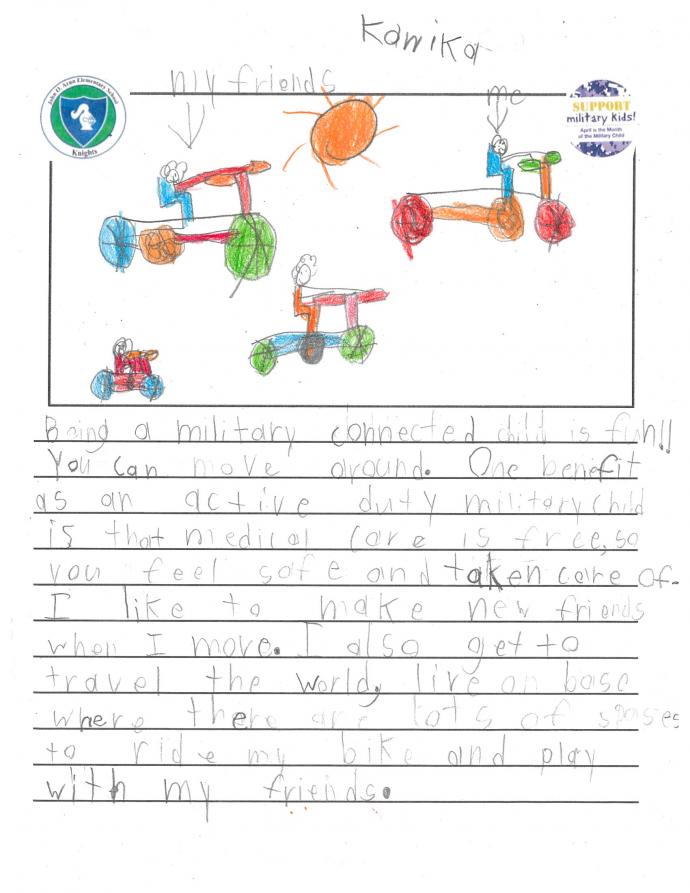 Kamika
my friends
me
John O. Arnn Elementary School
Knights
SUPPORT
military kids!
April is the Month
of the Military Child
Being a military connected child is fun!!
You can move around. One benefit
as an active duty military child
is that medical care is free, so
you feel safe and taken care of.
I like to make new friends
when I move. I also get to
travel the world, live on base
where there are lots of spases
to ride my bike and play
with my friends.